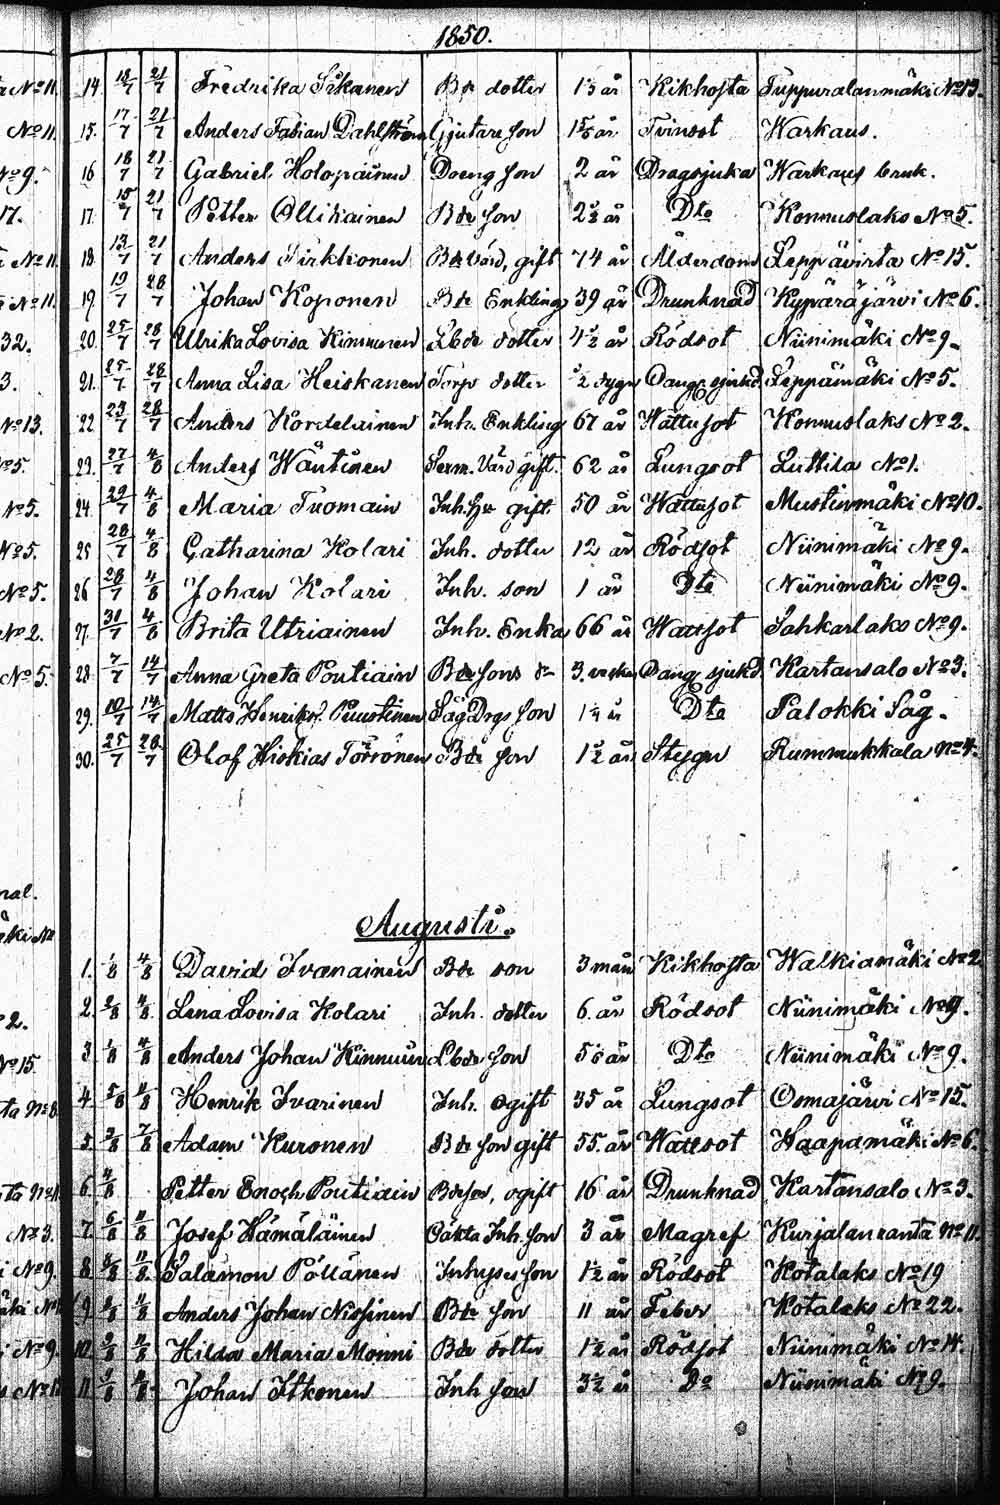 1850.
14. 18/7 21/7 Fredrika Sikanen Bde dotter 1½ år Kikhosta Tuppuralanmäki No 13.
15. 17/7 21/7 Anders Fabian Dahlström Gjutare son år Tvinsot Warkaus.
16 18/7 21/7 Gabriel Holopainen Dreng son 2 år Dragsjuka Warkaus bruk.
17. 15/7 21/7 Petter Ollikainen Bde son 2½ år Dto Konnuslaks No 5.
18. 13/7 21/7 Anders Pirkkonen Bdevärd, gift 74 år Ålderdom Leppävirta No 15.
19. 19/7 28/7 Johan Koponen Bde Enkling 39 år Drunknad Kypäräjärvi No 6.
20. 25/7 28/7 Ulrika Lovisa Kinnunen Lbde dotter 4½ år Rödsot Niinimäki No 9.
21. 25/7 28/7 Anna Lisa Heiskanen Torp dotter ½ dygn Leppämäki No 5.
22 23/7 28/7 Anders Kordelainen Inh. Enkling 67 år Wattusot Konnuslaks No 2.
23. 27/7 4/8 Anders Wäntinen Serm. Värd gift. 62 år Lungsot Luttila No 1.
24. 29/7 4/8 Maria Tuomain Inh. gift 50 år Wattusot Mustinmäki No 10.
25 28/7 4/8 Catharina Kolari Inh. dotter 12 år Rödsot Niinimäki No 9.
26 28/7 4/8 Johan Kolari Inh. son 1 år Dto Niinimäki No 9.
27. 31/7 4/8 Brita Utriainen Inh. Enka 66 år Wattsot Sahkarlaks No 9.
28. 7/7 14/7 Anna Greta Poutiain Bde sons 3. veckor Kartansalo No 3.
29. 10/7 14/7 Matts Henriks. Puustinen Såg Drgs son 1¼ år Dto Palokki Såg.
30. 25/7 28/7 Olof Hiskias Törrönen Bde son 1½ år Stygn Rummukkala No 4.
Augusti.
1. 1/8 4/8 David Ivanainen Bde son 3 mån Kikhosta Walkiamäki No 2
2. 2/8 4/8 Lena Lovisa Kolari Inh. dotter 6. år Rödsot Niinimäki No 9.
3. 1/8 4/8 Anders Johan Kinnunen Lbde son år Dto Niinimäki No 9.
4. 5/8 11/8 Henrik Ivarinen Inh. ogift 35 år Lungsot Osmajärvi No 15.
5. 2/8 7/8 Adam Kuronen Bde son gift 55. år Wattsot Haapamäki No 6.
6. 4/8 Petter Enoch Poutiain Bdeson, ogift 16 år Drunknad Kartansalo No 3.
7. 6/8 11/8 Josef Hämäläinen Oäkta Inh. son 3 år Magref Kurjalanranta No 11.
8. 8/8 11/8 Salamon Pöllänen Inhyses son 1½ år Rödsot Kotalaks No 19
9. 11/8 Anders Johan Nissinen Bde son 11 år Feber Kotalaks No 22.
10. 9/8 11/8 Hilda Maria Monni Bde dotter 1½ år Rödsot Niinimäki No 14.
11. 9/8 11/8 Johan Itkonen Inh son 3½ år Do Niinimäki No 9.